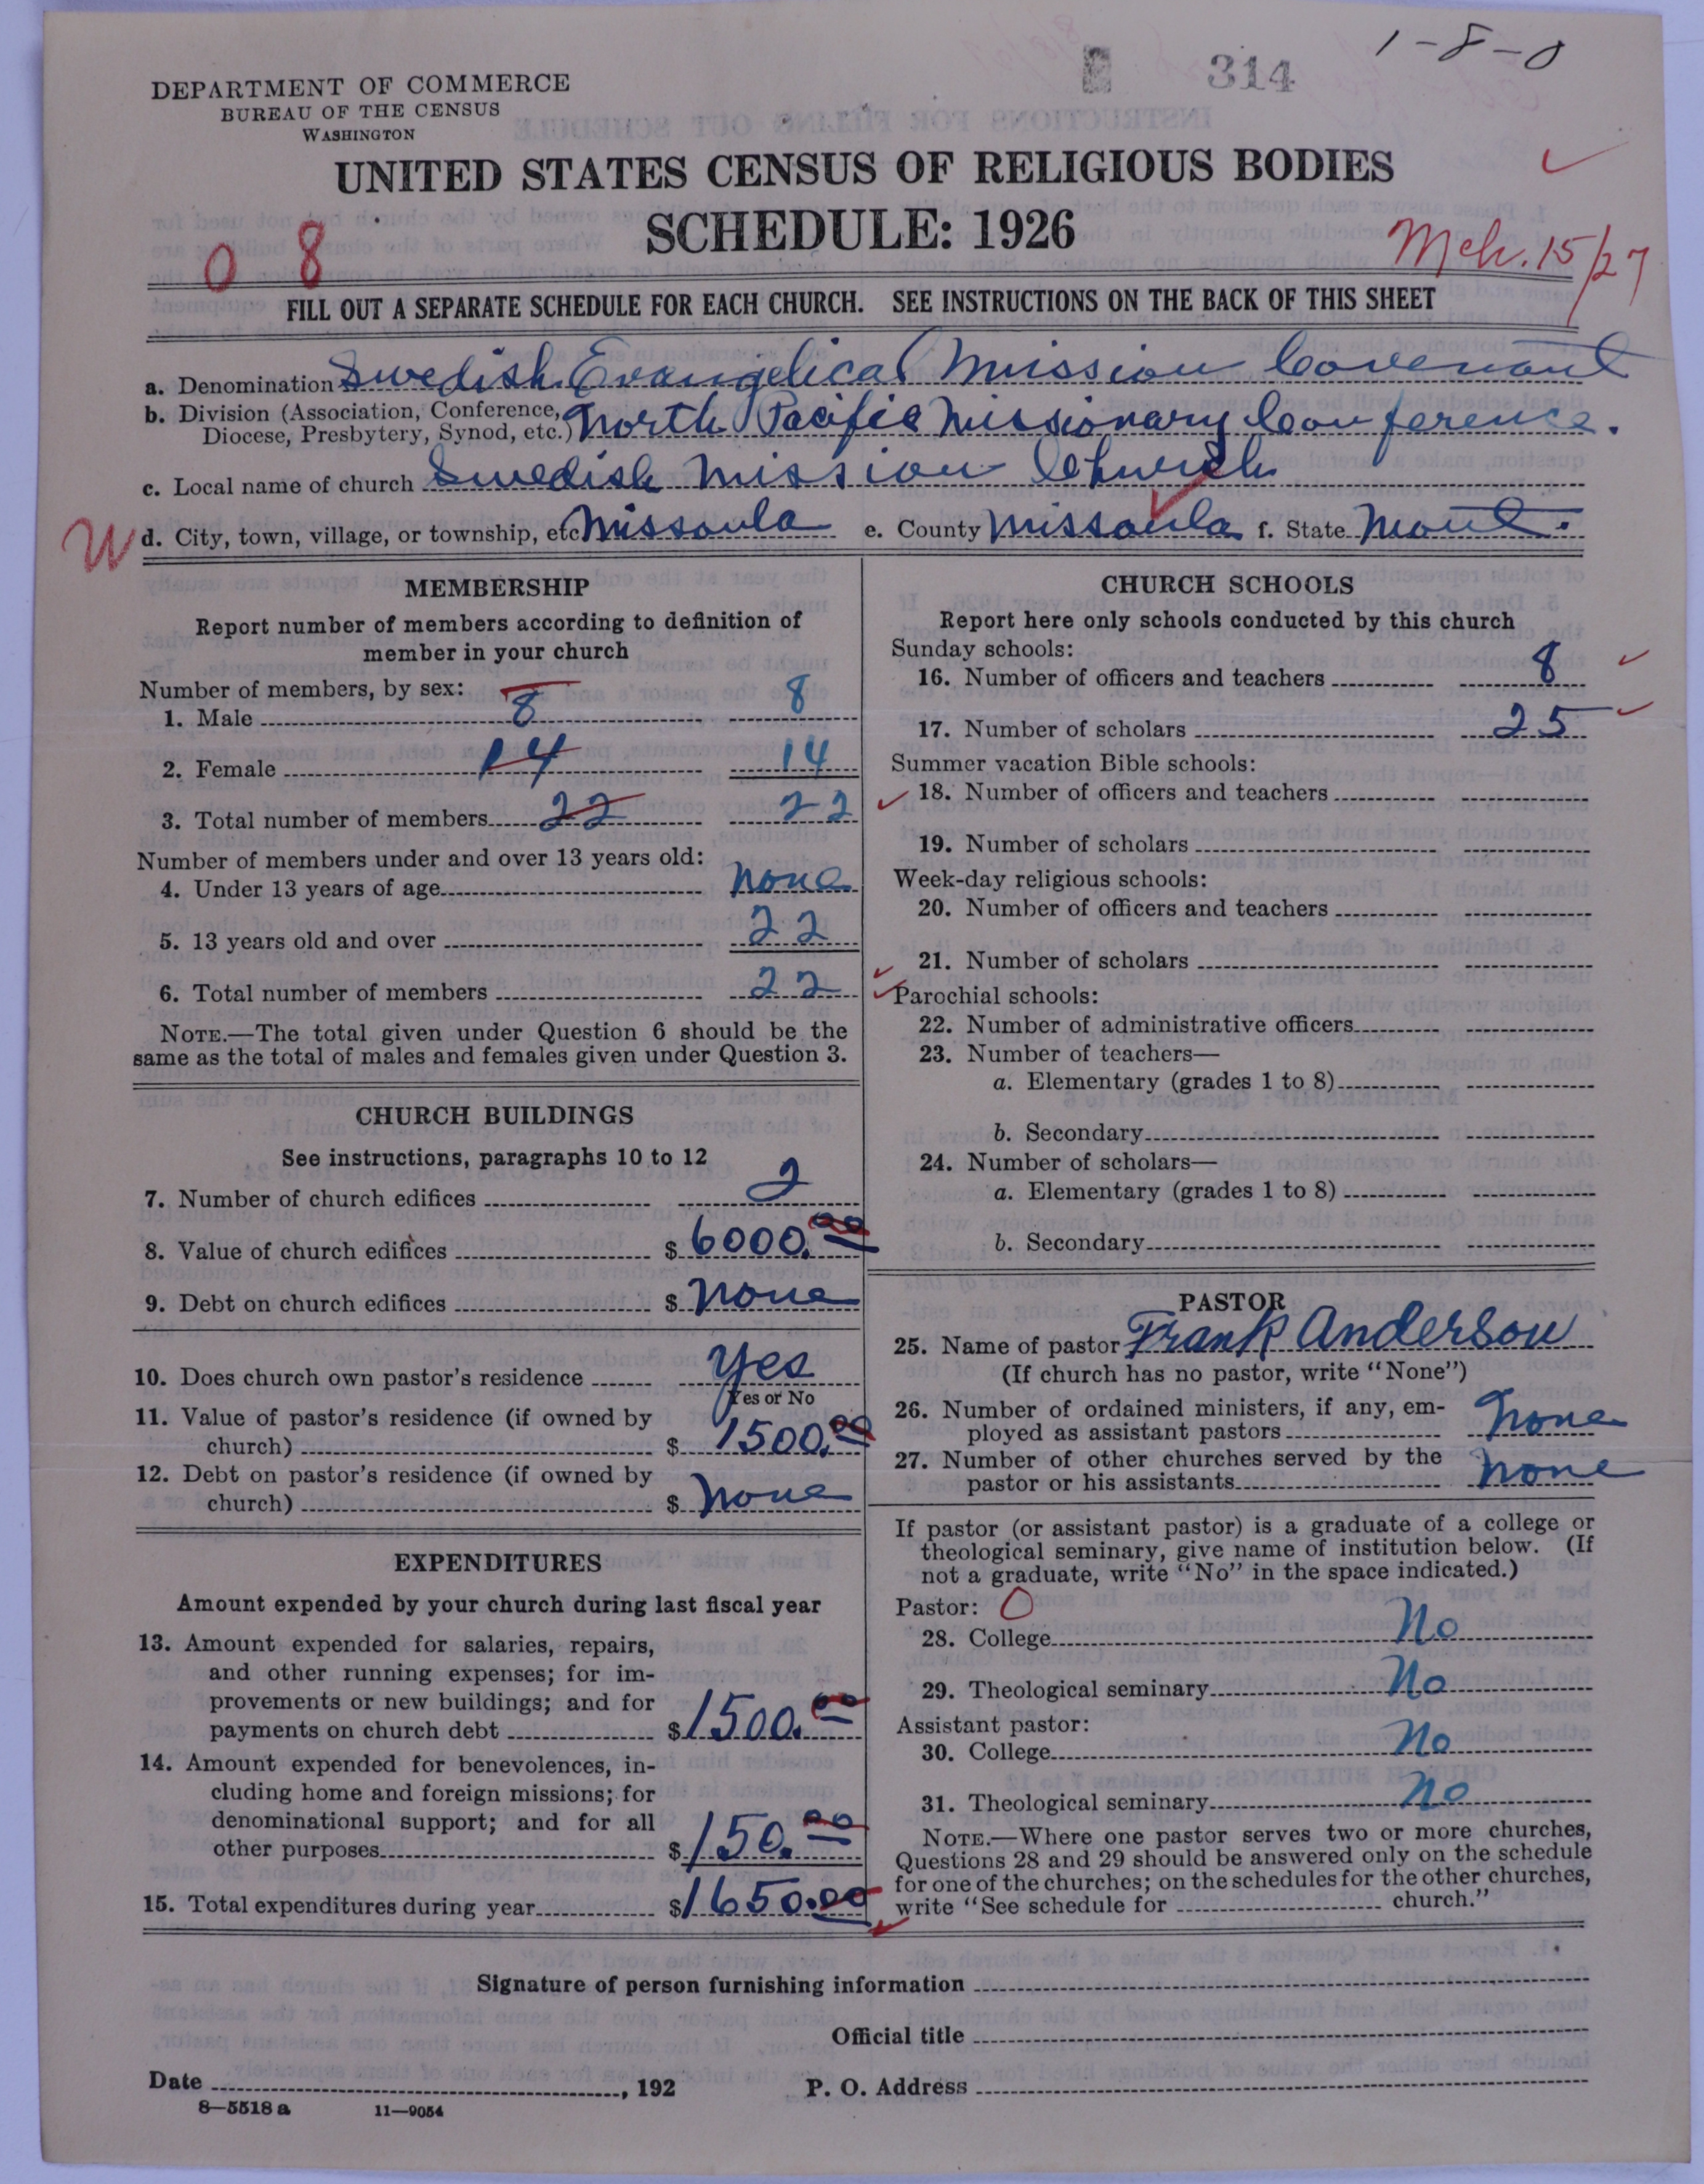 1-8-0
314
DEPARTMENT OF COMMERCE
BUREAU OF THE CENSUS
WASHINGTON
UNITED STATES CENSUS OF RELIGIOUS BODIES
SCHEDULE: 1926
0 8
Mch. 15/27
FILL OUT A SEPARATE SCHEDULE FOR EACH CHURCH. SEE INSTRUCTIONS ON THE BACK OF THIS SHEET
a. Denomination Swedish Evangelical Mission Covenant
b. Division (Association, Conference, Diocese, Presbytery, Synod, etc.) North Pacific Missionary Conference.
c. Local name of church Swedish Mission Church
W d. City, town, village, or township, etc. Missoula e. County Missoula f. State Mont.
MEMBERSHIP
Report number of members according to definition of
member in your church
Number of members, by sex:
1. Male 8 8
2. Female 14 14
3. Total number of members 22 22
Number of members under and over 13 years old:
4. Under 13 years of age none
5. 13 years old and over 22
6. Total number of members 22
NOTE.—The total given under Question 6 should be the
same as the total of males and females given under Question 3.
CHURCH BUILDINGS
See instructions, paragraphs 10 to 12
7. Number of church edifices 2
8. Value of church edifices $ 6000.00
9. Debt on church edifices $ None
10. Does church own pastor's residence Yes
Yes or No
11. Value of pastor's residence (if owned by
church) $ 1500.00
12. Debt on pastor's residence (if owned by
church) $ None
EXPENDITURES
Amount expended by your church during last fiscal year
13. Amount expended for salaries, repairs,
and other running expenses; for im-
provements or new buildings; and for
payments on church debt $ 1500.00
14. Amount expended for benevolences, in-
cluding home and foreign missions; for
denominational support; and for all
other purposes $ 150.00
15. Total expenditures during year $ 1650.00
CHURCH SCHOOLS
Report here only schools conducted by this church
Sunday schools:
16. Number of officers and teachers 8
17. Number of scholars 25
Summer vacation Bible schools:
18. Number of officers and teachers
19. Number of scholars
Week-day religious schools:
20. Number of officers and teachers
21. Number of scholars
Parochial schools:
22. Number of administrative officers
23. Number of teachers—
a. Elementary (grades 1 to 8)
b. Secondary
24. Number of scholars—
a. Elementary (grades 1 to 8)
b. Secondary
PASTOR
25. Name of pastor Frank Anderson
(If church has no pastor, write "None")
26. Number of ordained ministers, if any, em-
ployed as assistant pastors None
27. Number of other churches served by the
pastor or his assistants None
If pastor (or assistant pastor) is a graduate of a college or
theological seminary, give name of institution below. (If
not a graduate, write "No" in the space indicated.)
Pastor: O
28. College No
29. Theological seminary No
Assistant pastor:
30. College No
31. Theological seminary No
NOTE.—Where one pastor serves two or more churches,
Questions 28 and 29 should be answered only on the schedule
for one of the churches; on the schedules for the other churches,
write "See schedule for church."
Signature of person furnishing information
Official title
Date , 192
P. O. Address
8—5518 a 11—9054